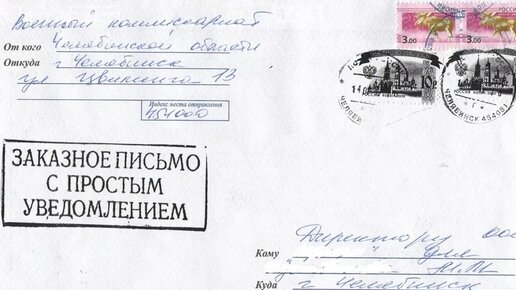 От кого Военный комиссариат
Челябинской области
Откуда г Челябинск
ул Цвиллинга 13
Индекс места отправления
454000
3.00
3.00
РОССИЯ
10
ЧЕЛЯБИНСК 454091
ЗАКАЗНОЕ ПИСЬМО
С ПРОСТЫМ
УВЕДОМЛЕНИЕМ
Кому Директору ООО
для
Куда г Челябинск